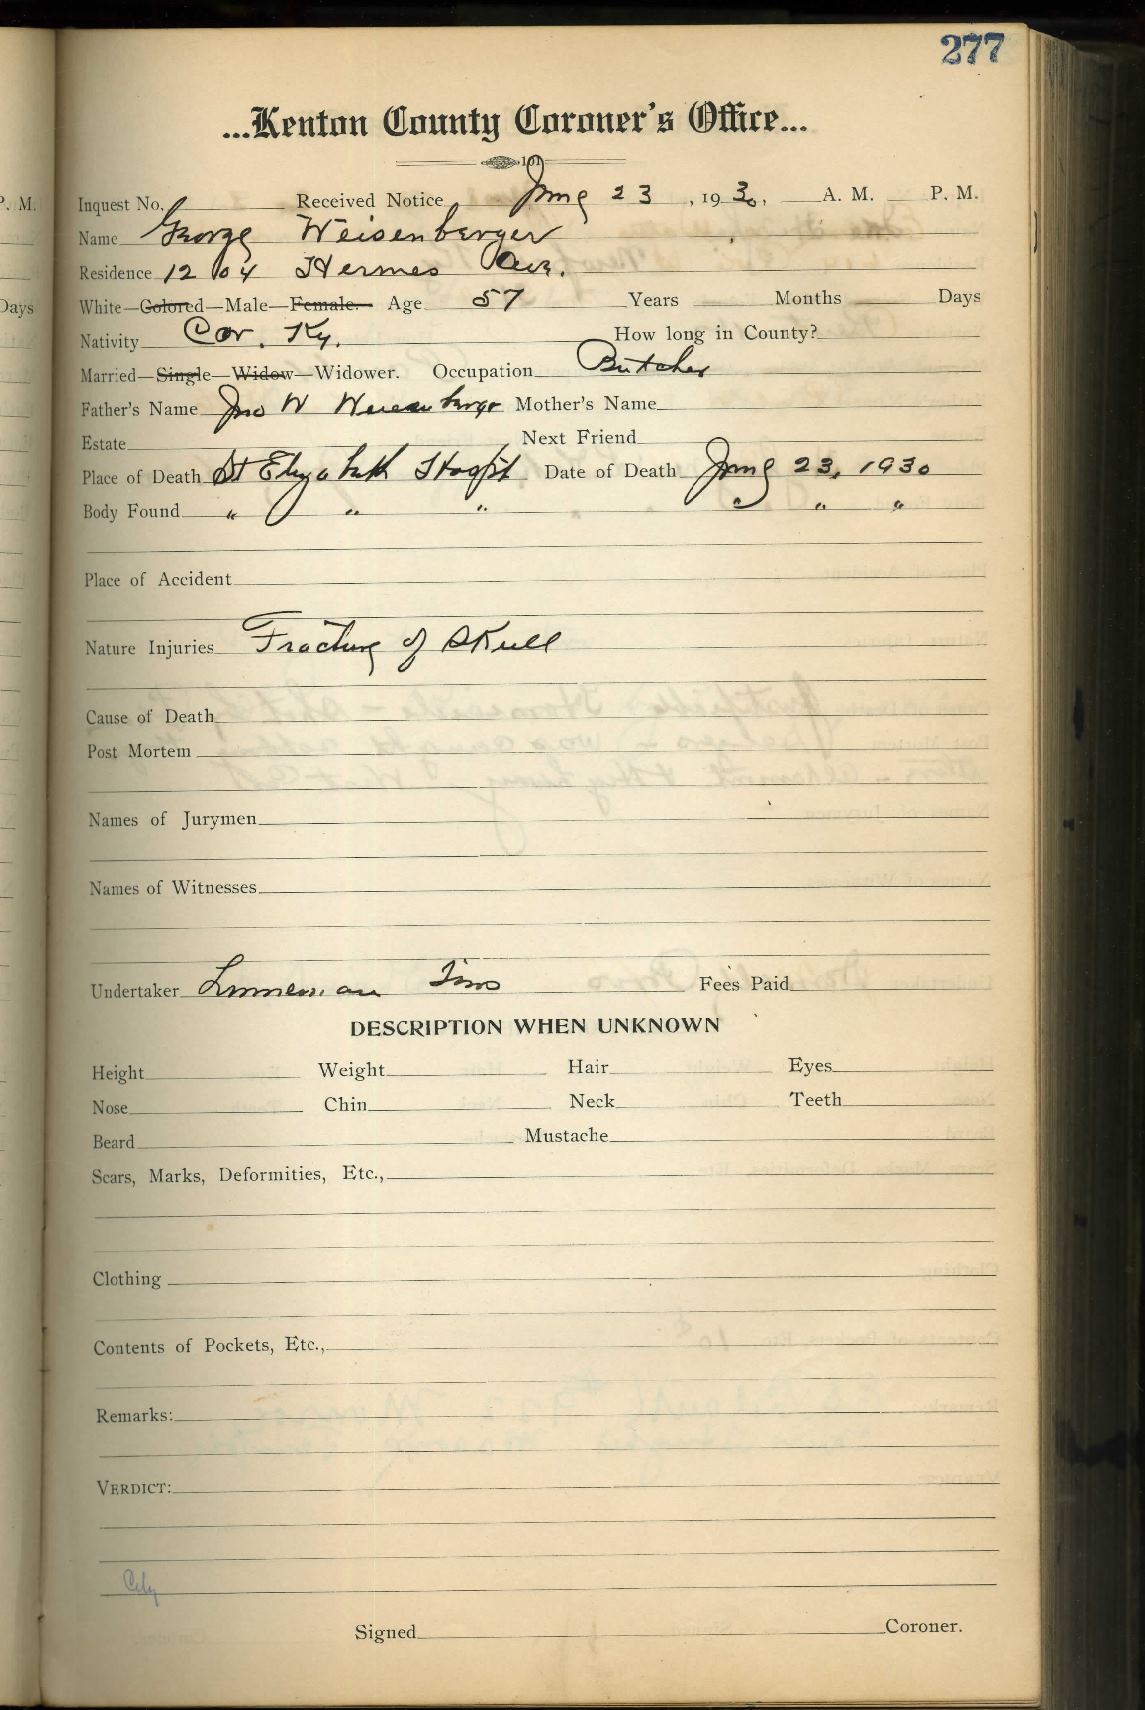 277
...Kenton County Coroner's Office...
101
Inquest No. Received Notice June 23, 1930, A. M. P. M.
Name George Weisenberger
Residence 1204 Hermes Ave.
White—Colored—Male—Female.— Age 57 Years Months Days
Nativity Cov. Ky. How long in County?
Married—Single—Widow—Widower. Occupation Butcher
Father's Name Jno W Weisenberger Mother's Name
Estate Next Friend
Place of Death St Elizabeth Hospt Date of Death June 23, 1930
Body Found " " " " " "
Place of Accident
Nature Injuries Fracture of Skull
Cause of Death
Post Mortem
Names of Jurymen
Names of Witnesses
Undertaker Linneman Sons Fees Paid
DESCRIPTION WHEN UNKNOWN
Height Weight Hair Eyes
Nose Chin Neck Teeth
Beard Mustache
Scars, Marks, Deformities, Etc.,
Clothing
Contents of Pockets, Etc.,
Remarks:
VERDICT:
City
Signed Coroner.
P. M.
Days